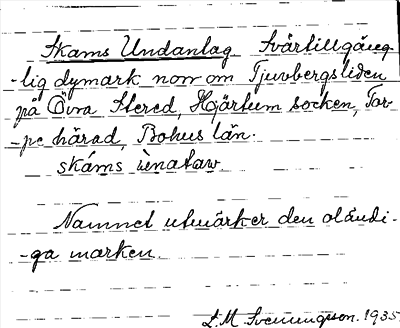 Skams Undantag Svårtillgäng-
-lig dymark norr om Tjuvbergsliden
på Övra Stered, Hjärtum socken, Tor-
-pe härad, Bohus län.
skáms ùnataw
Namnet utmärker den oländi-
-ga marken.
L. M. Svenungsson. 1935